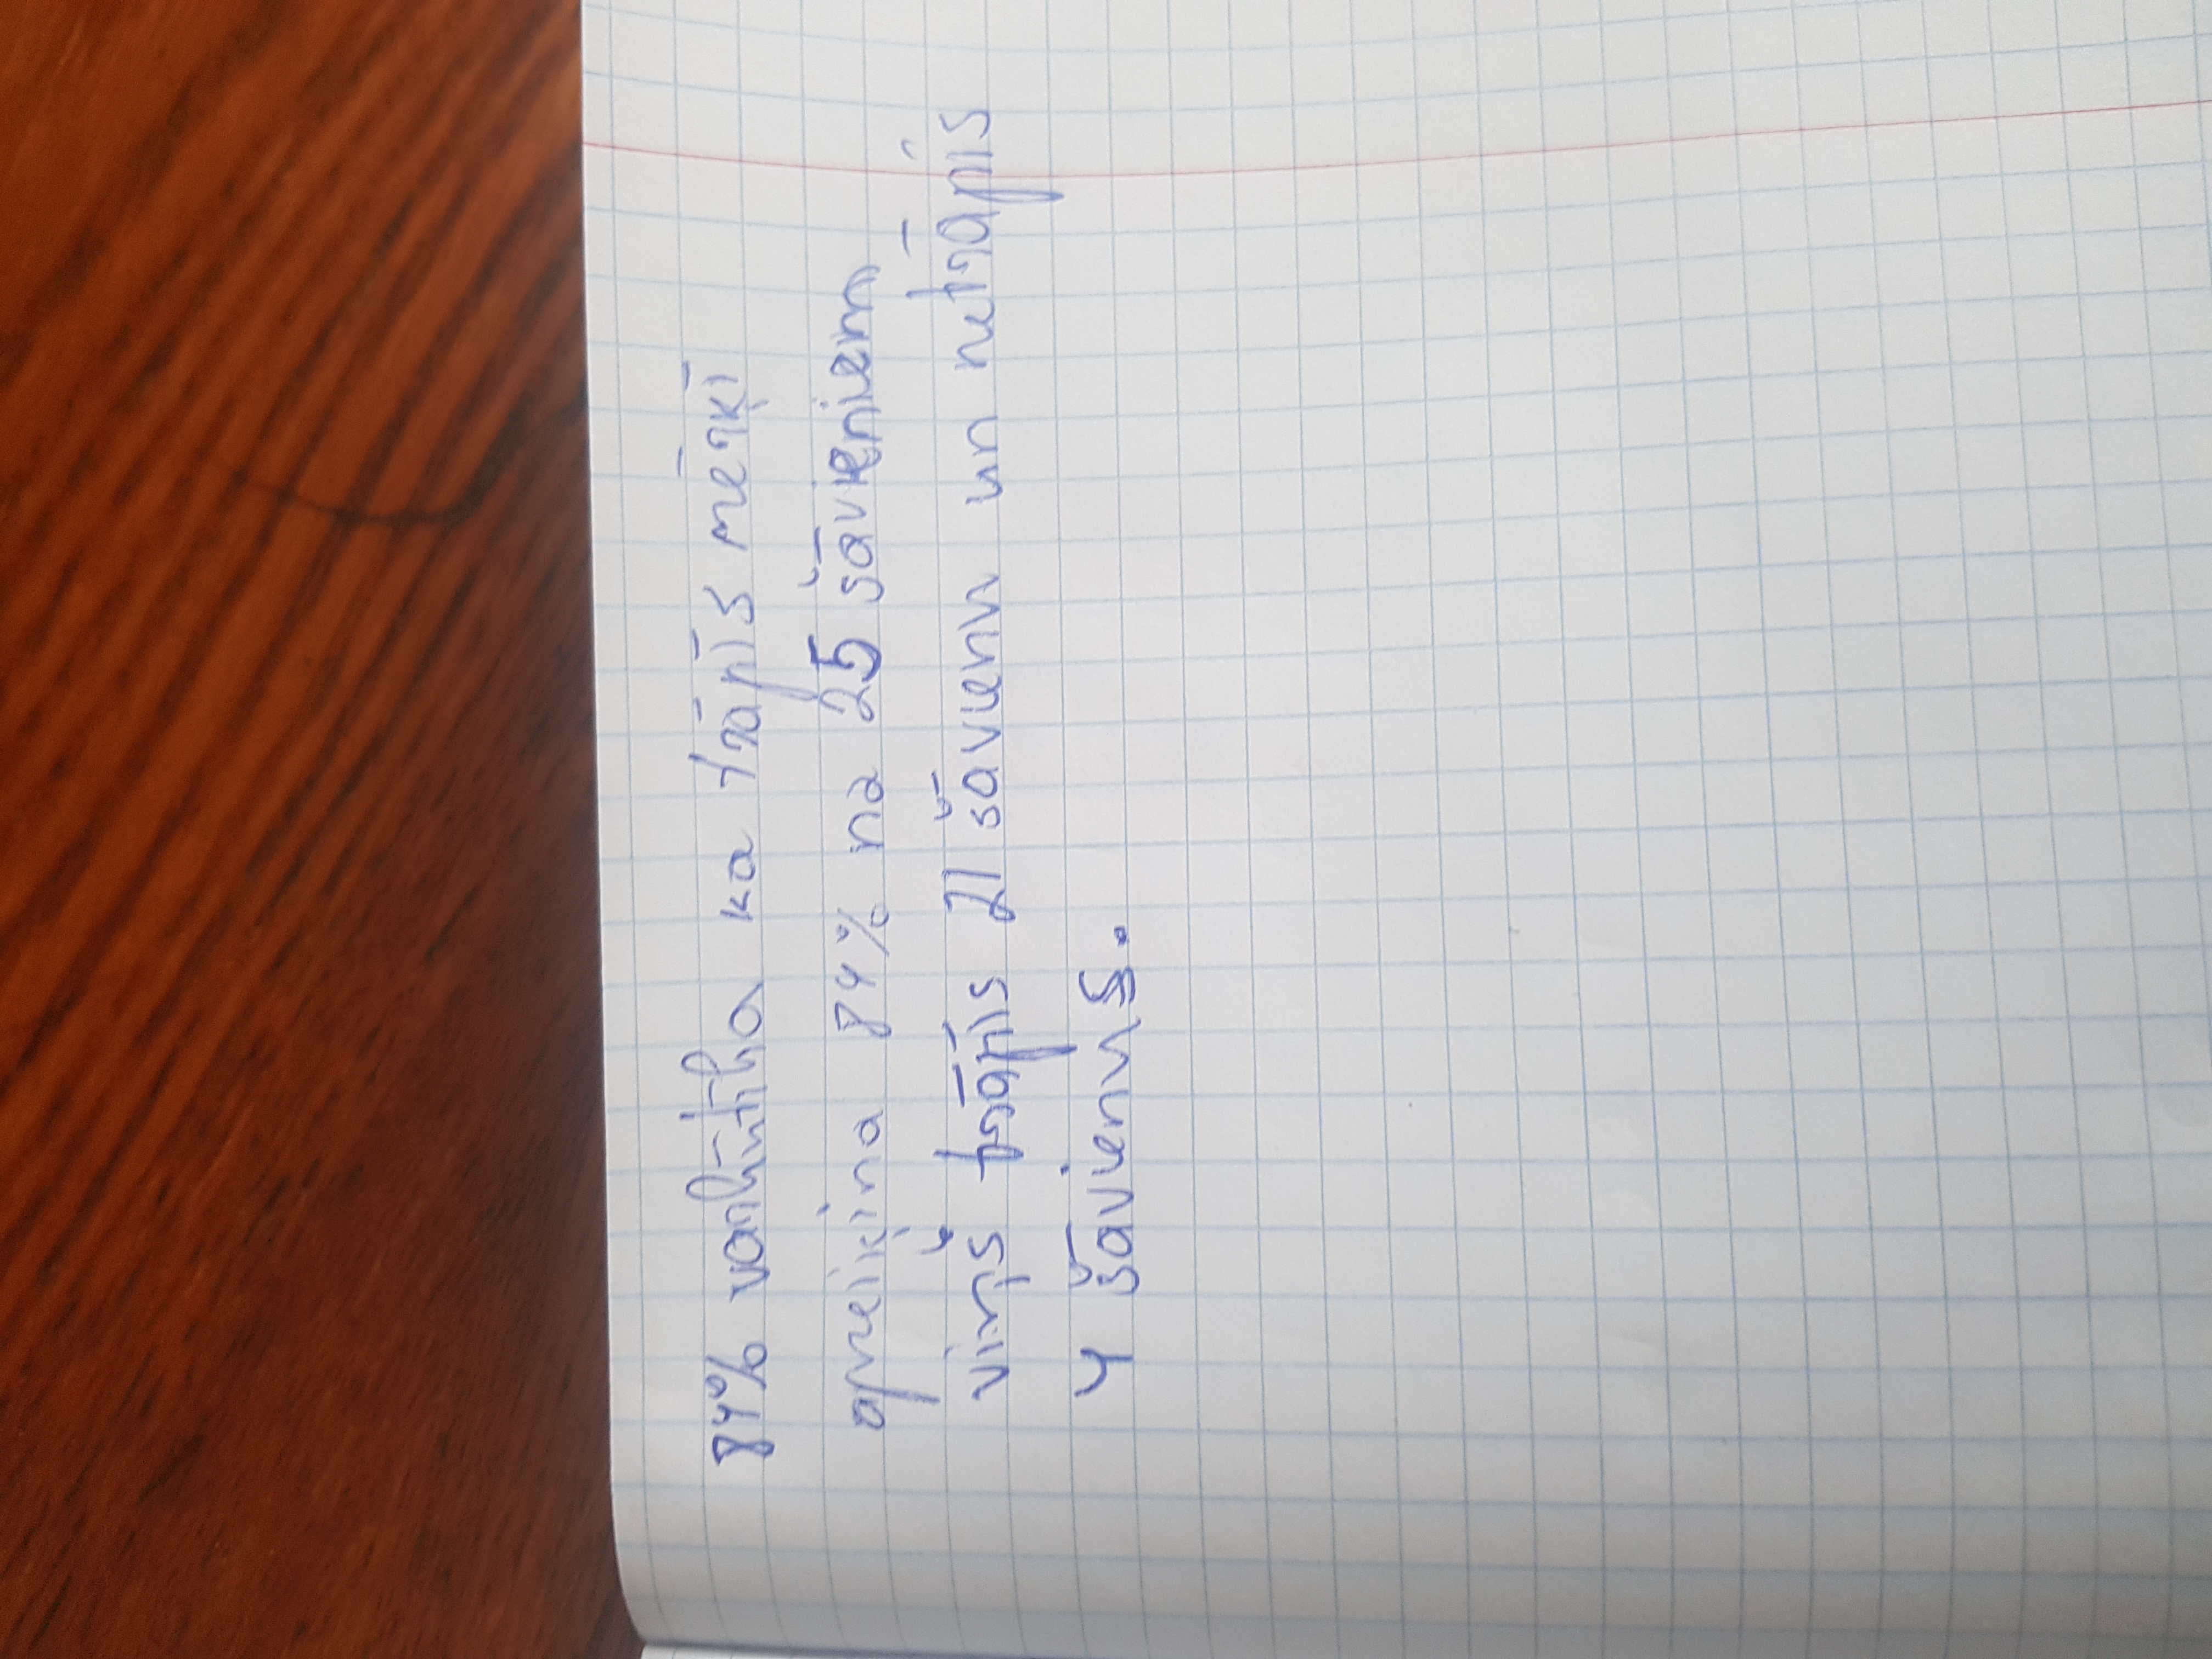 84% varbūtība ka trāpīs mērķī
apreiķina 84% no 25 šāvieniem
viņš trāpīs 21 šāvienu un netrāpīs
4 šāvienus.